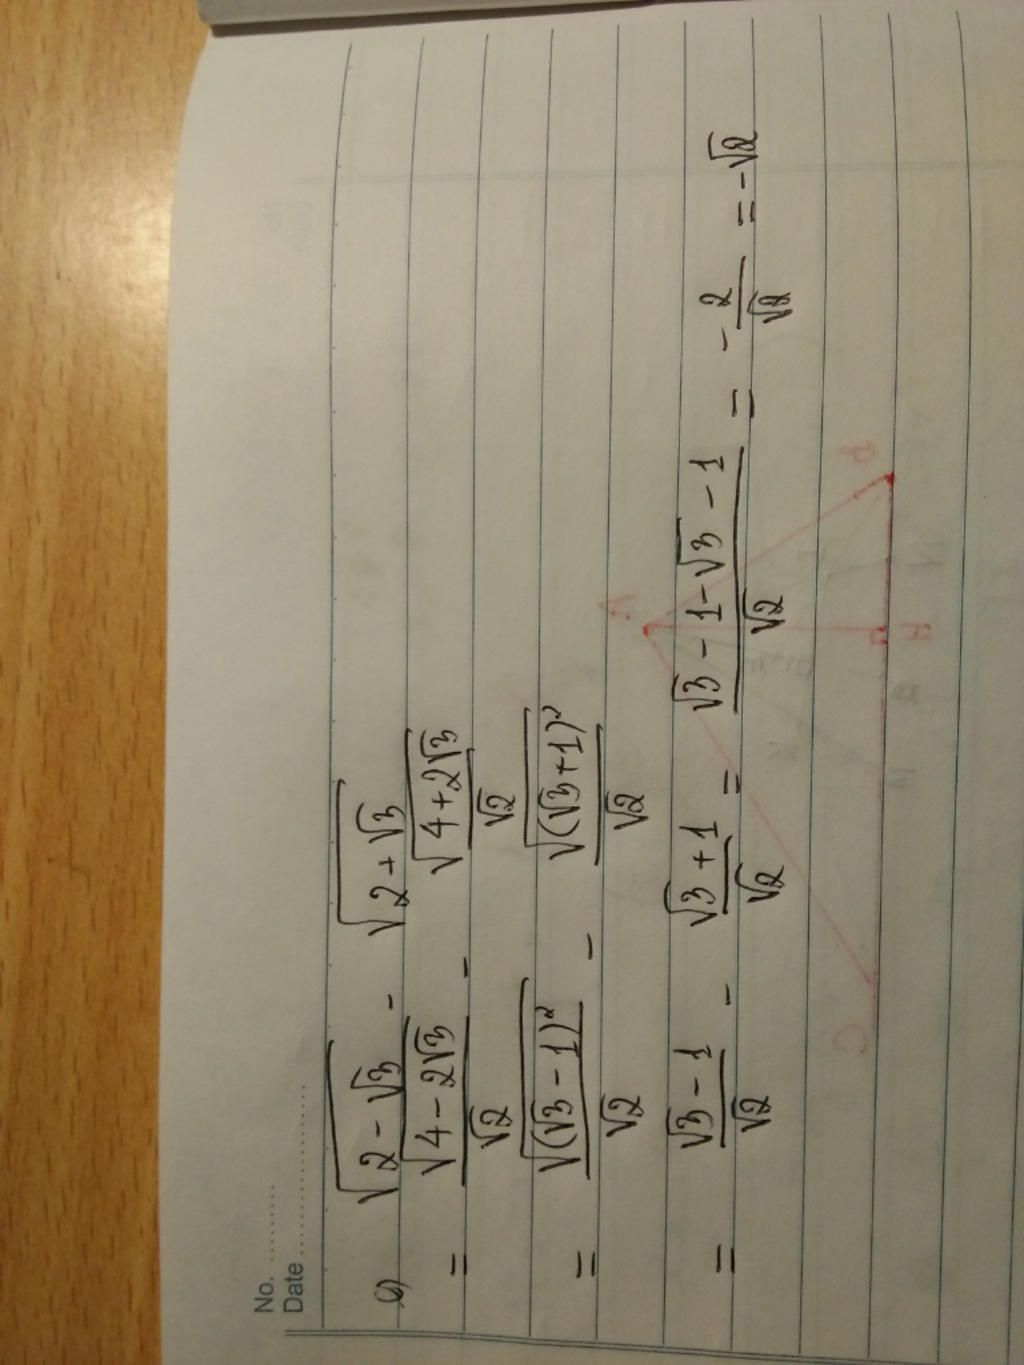 No. ............
Date ........................
c) √(2 - √3) - √(2 + √3)
= √(4 - 2√3)/√2 - √(4 + 2√3)/√2
= √((√3 - 1)²)/√2 - √((√3 + 1)²)/√2
= (√3 - 1)/√2 - (√3 + 1)/√2 = (√3 - 1 - √3 - 1)/√2 = - 2/√2 = -√2